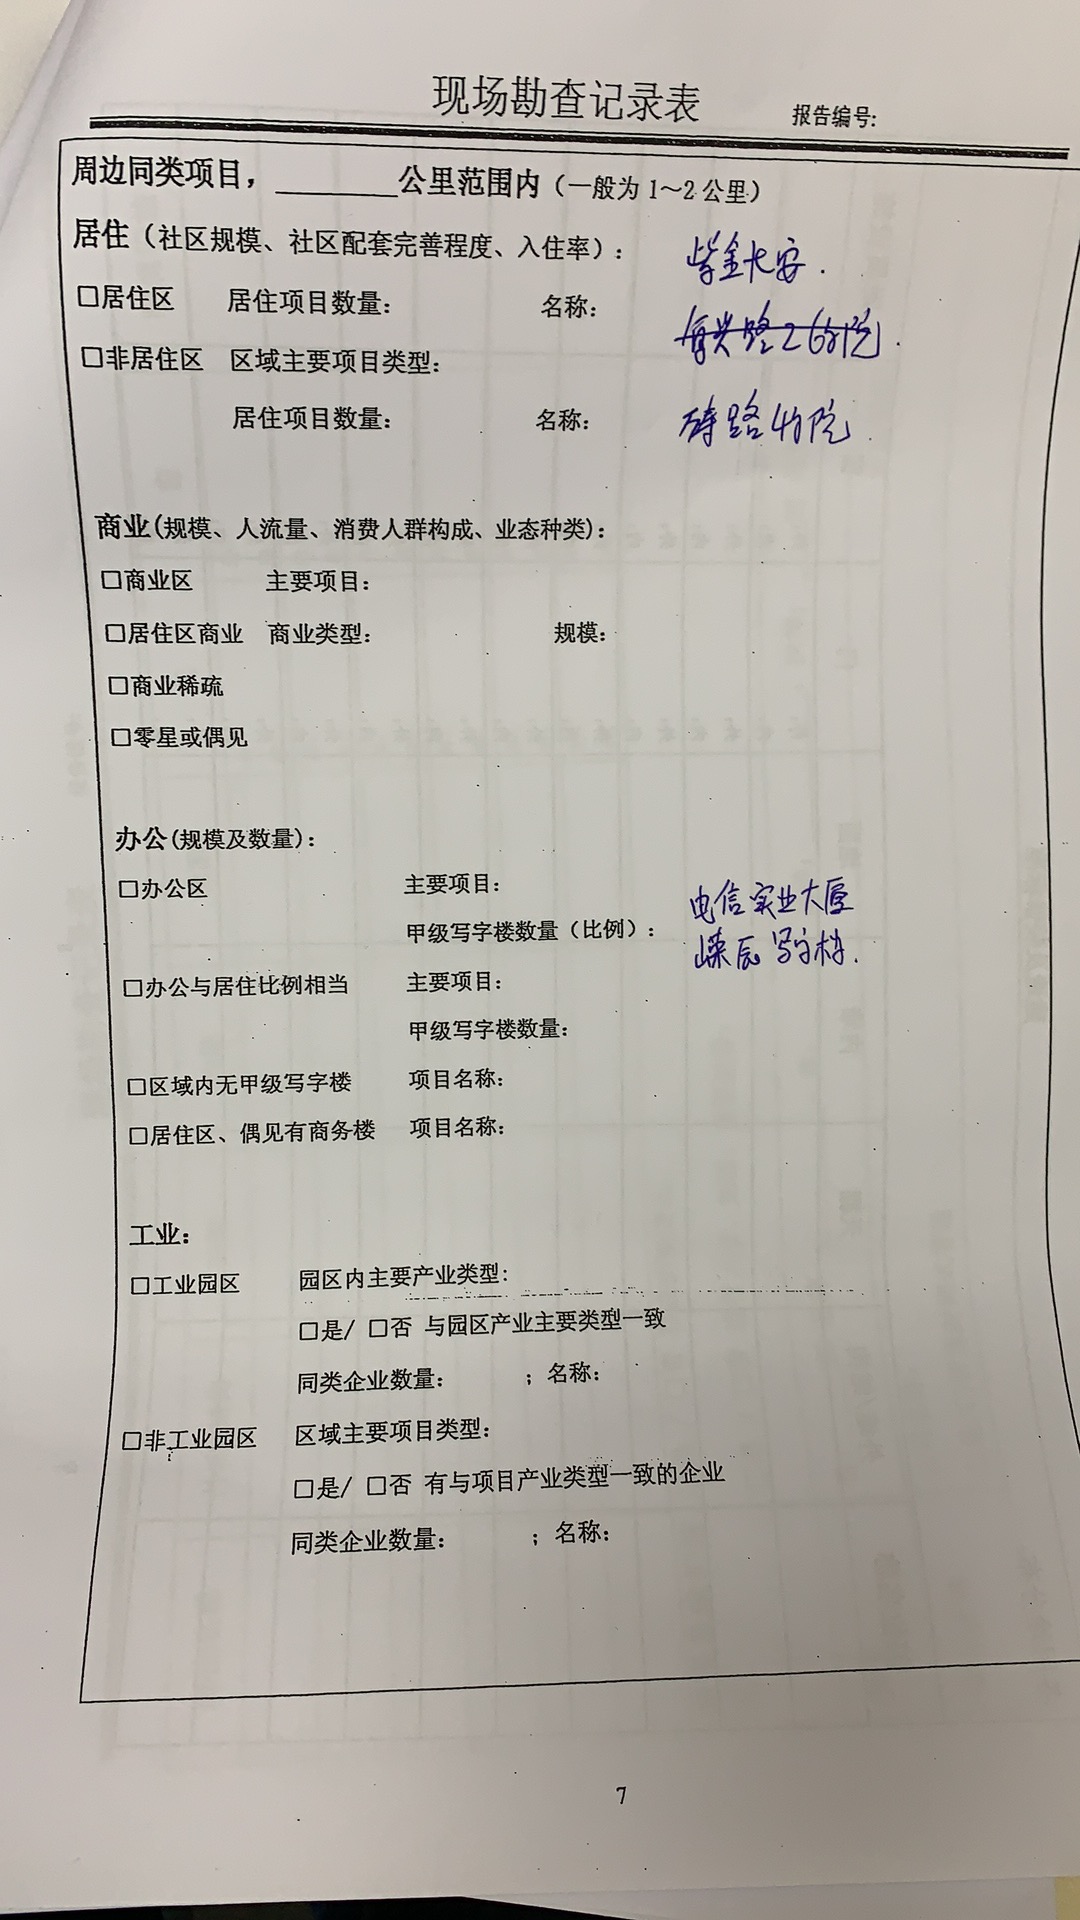 现场勘查记录表
报告编号:
周边同类项目，________公里范围内（一般为1～2公里）
居住（社区规模、社区配套完善程度、入住率）: 紫金长安.
□居住区 居住项目数量: 名称:
复兴路26号院.
□非居住区 区域主要项目类型:
居住项目数量: 名称: 路4号院.
商业(规模、人流量、消费人群构成、业态种类):
□商业区 主要项目:
□居住区商业 商业类型: 规模:
□商业稀疏
□零星或偶见
办公(规模及数量):
□办公区 主要项目: 电信实业大厦
甲级写字楼数量（比例）: 嵘辰写字楼.
□办公与居住比例相当 主要项目:
甲级写字楼数量:
□区域内无甲级写字楼 项目名称:
□居住区、偶见有商务楼 项目名称:
工业:
□工业园区 园区内主要产业类型:
□是/ □否 与园区产业主要类型一致
同类企业数量: ; 名称:
□非工业园区 区域主要项目类型:
□是/ □否 有与项目产业类型一致的企业
同类企业数量: ; 名称:
7